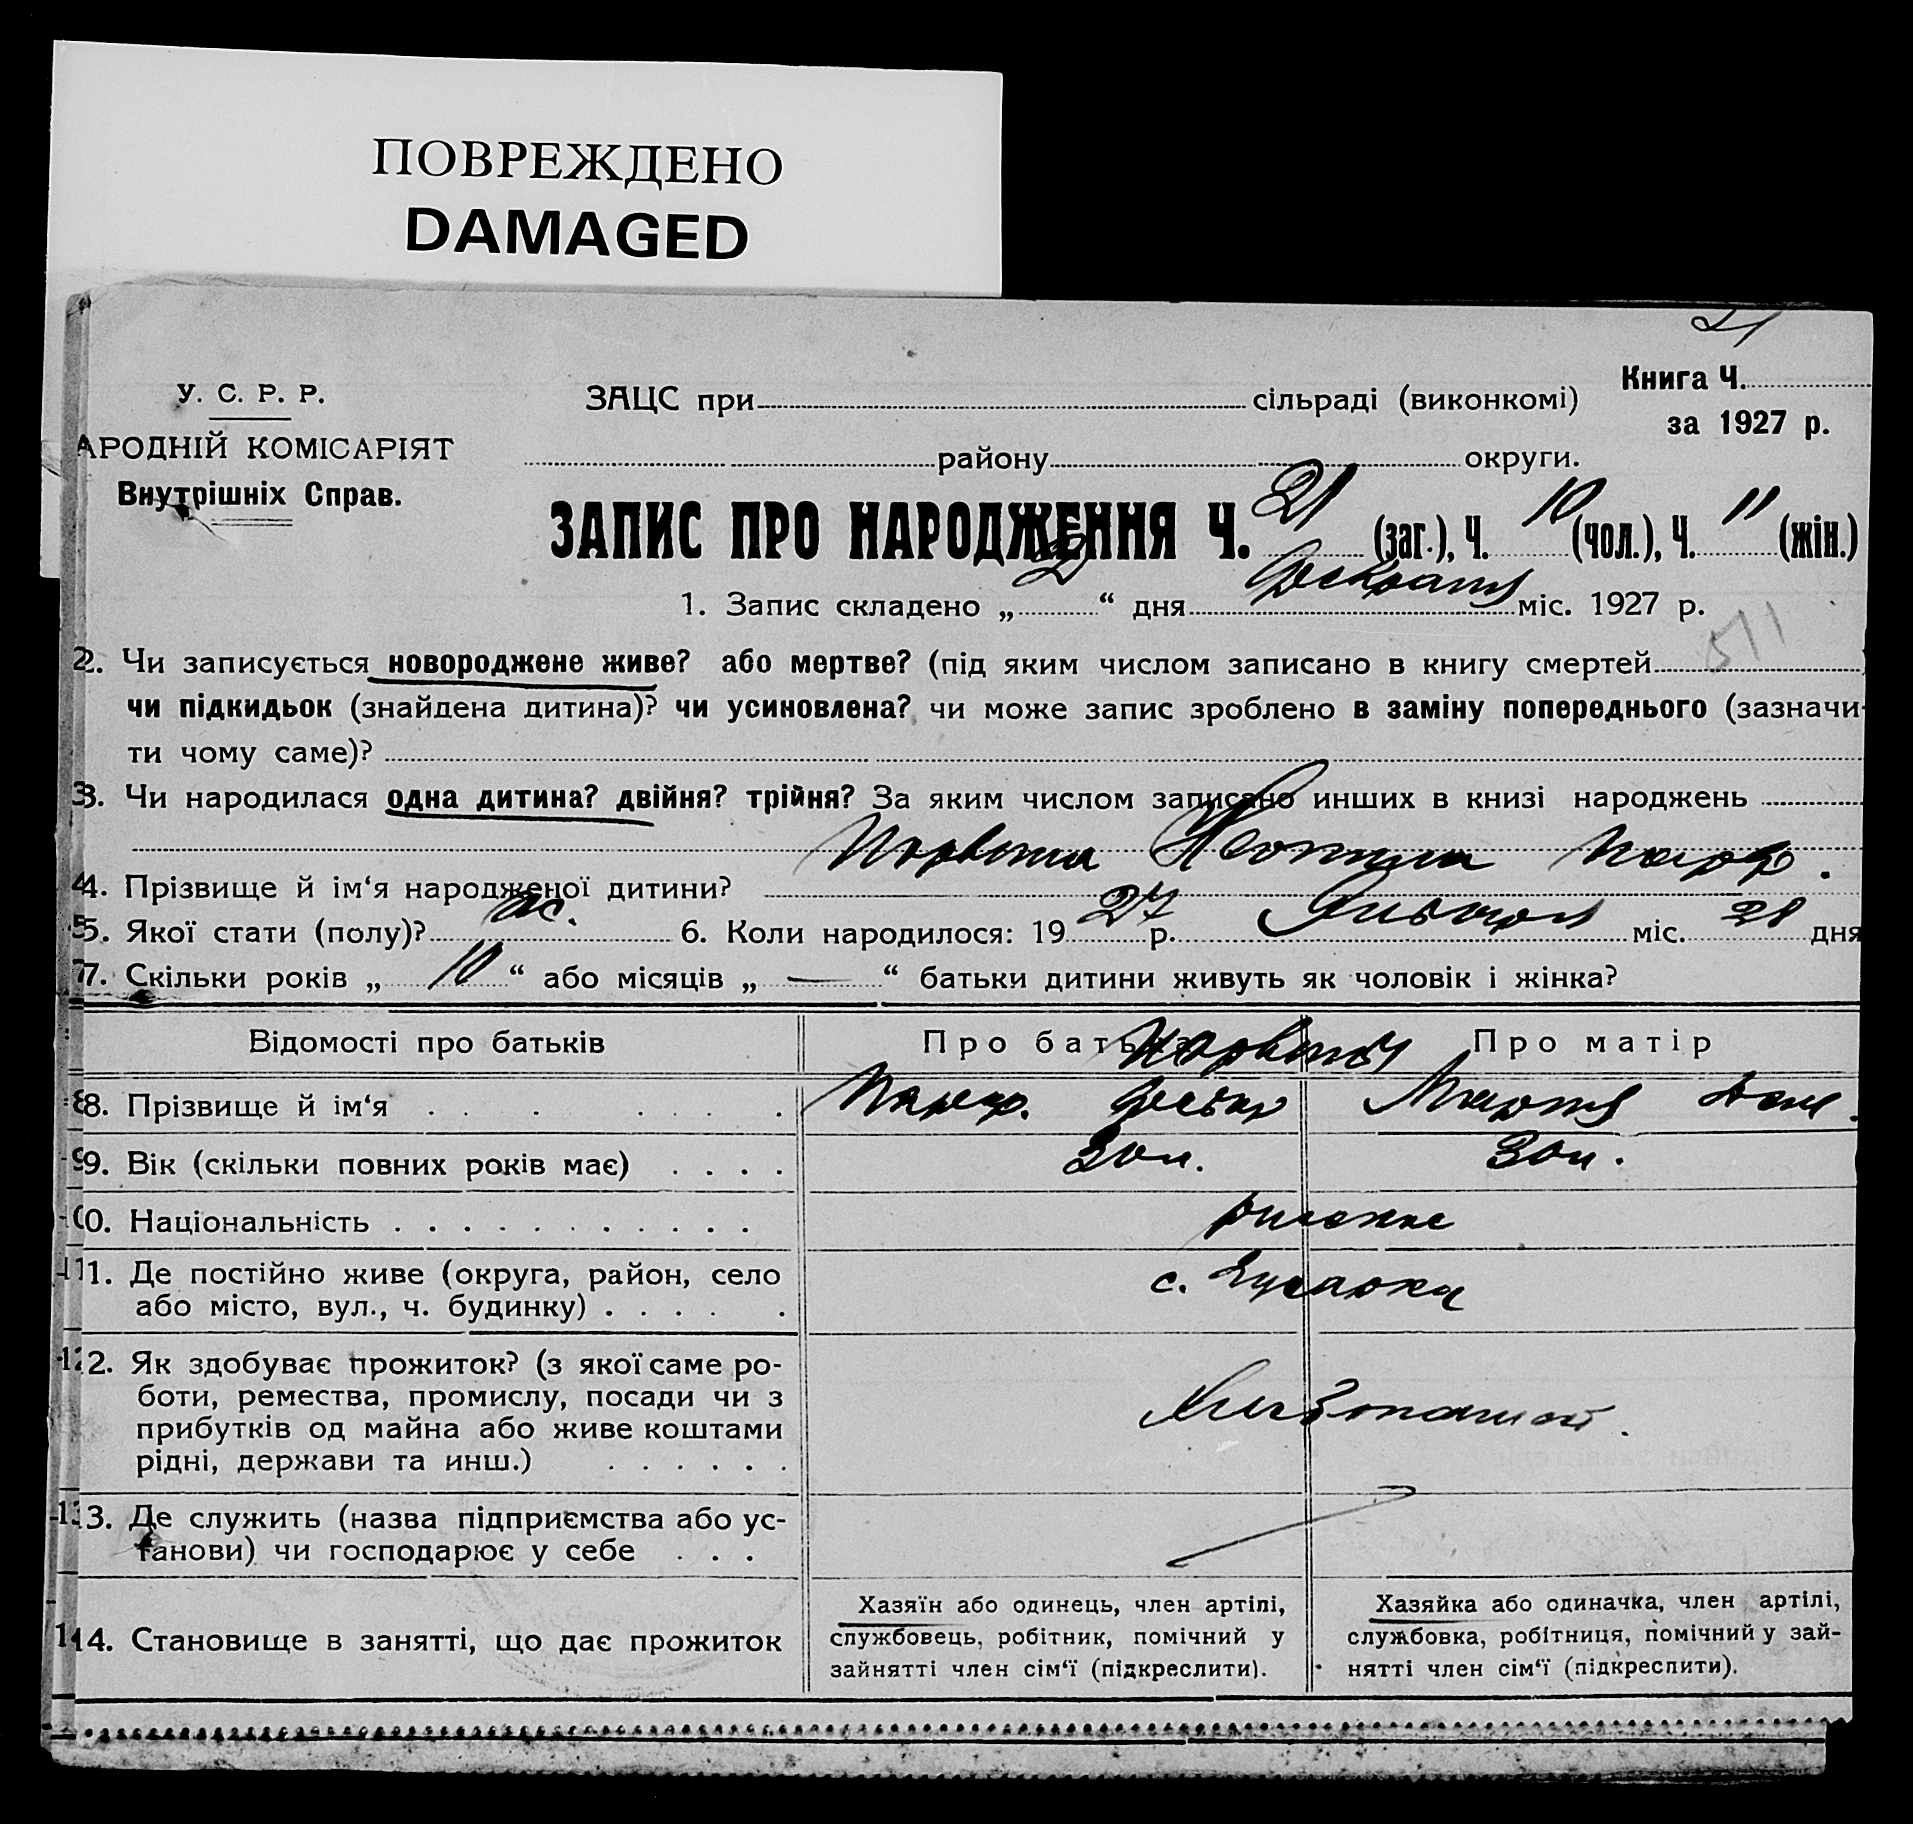 ПОВРЕЖДЕНО
DAMAGED
21
У. С. Р. Р.
АРОДНІЙ КОМІСАРІЯТ
Внутрішніх Справ.
ЗАЦС при сільраді (виконкомі)
Книга Ч.
за 1927 р.
району округи.
ЗАПИС ПРО НАРОДЖЕННЯ Ч. 21 (заг.), Ч. 10 (чол.), Ч. 11 (жін.)
1. Запис складено „ 2 “ дня Февраля міс. 1927 р.
511
2. Чи записується новороджене живе? або мертве? (під яким числом записано в книгу смертей
чи підкидьок (знайдена дитина)? чи усиновлена? чи може запис зроблено в заміну попереднього (зазначи-
ти чому саме)?
3. Чи народилася одна дитина? двійня? трійня? За яким числом записано инших в книзі народжень
4. Прізвище й ім‘я народженої дитини?
5. Якої стати (полу)? ж. 6. Коли народилося: 19 27 р. Января міс. 28 дня
7. Скільки років „ 10 “ або місяців „ — “ батьки дитини живуть як чоловік і жінка?
Відомості про батьків Про батька Про матір
8. Прізвище й ім‘я Марфа
9. Вік (скільки повних років має) 30 л. 30 л.
0. Національність
11. Де постійно живе (округа, район, село
або місто, вул., ч. будинку) с.
2. Як здобуває прожиток? (з якої саме ро-
боти, ремества, промислу, посади чи з
прибутків од майна або живе коштами
рідні, держави та инш.)
Хлебопашест.
3. Де служить (назва підприємства або ус-
танови) чи господарює у себе
14. Становище в занятті, що дає прожиток
Хазяїн або одинець, член артілі,
службовець, робітник, помічний у
зайнятті член сім‘ї (підкреслити).
Хазяйка або одиначка, член артілі,
службовка, робітниця, помічний у зай-
нятті член сім‘ї (підкреслити).